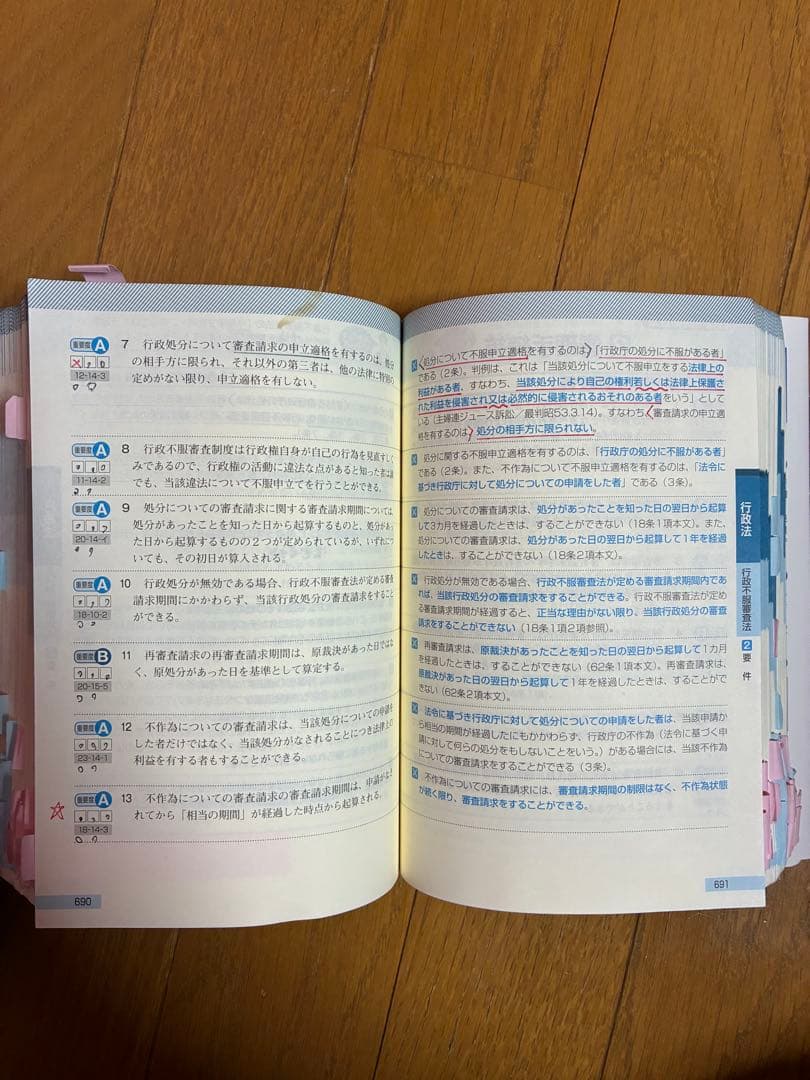 重要度A
12-14-3
7 行政処分について審査請求の申立適格を有するのは、処分
の相手方に限られ、それ以外の第三者は、他の法律に特別の
定めがない限り、申立適格を有しない。
重要度A
11-14-2
8 行政不服審査制度は行政権自身が自己の行為を見直すしく
みであるので、行政権の活動に違法な点があると知った者は誰
でも、当該違法について不服申立てを行うことができる。
重要度A
20-14-イ
9 処分についての審査請求に関する審査請求期間については、
処分があったことを知った日から起算するものと、処分があっ
た日から起算するものの2つが定められているが、いずれにつ
いても、その初日が算入される。
重要度A
18-10-2
10 行政処分が無効である場合、行政不服審査法が定める審査
請求期間にかかわらず、当該行政処分の審査請求をすることが
できる。
重要度B
20-15-5
11 再審査請求の再審査請求期間は、原裁決があった日ではな
く、原処分があった日を基準として算定する。
重要度A
23-14-1
12 不作為についての審査請求は、当該処分についての申請を
した者だけではなく、当該処分がなされることにつき法律上の
利益を有する者もすることができる。
重要度A
18-14-3
13 不作為についての審査請求の審査請求期間は、申請がなさ
れてから「相当の期間」が経過した時点から起算される。
690
× 処分について不服申立適格を有するのは、「行政庁の処分に不服がある者」
である(2条)。判例は、これは「当該処分について不服申立をする法律上の
利益がある者、すなわち、当該処分により自己の権利若しくは法律上保護さ
れた利益を侵害され又は必然的に侵害されるおそれのある者をいう」として
いる(主婦連ジュース訴訟/最判昭53.3.14)。すなわち、審査請求の申立適
格を有するのは、処分の相手方に限られない。
× 処分に関する不服申立適格を有するのは、「行政庁の処分に不服がある者」
である(2条)。また、不作為について不服申立適格を有するのは、「法令に
基づき行政庁に対して処分についての申請をした者」である(3条)。
× 処分についての審査請求は、処分があったことを知った日の翌日から起算
して3カ月を経過したときは、することができない(18条1項本文)。また、
処分についての審査請求は、処分があった日の翌日から起算して1年を経過
したときは、することができない(18条2項本文)。
× 行政処分が無効である場合、行政不服審査法が定める審査請求期間内であ
れば、当該行政処分の審査請求をすることができる。行政不服審査法が定め
る審査請求期間が経過すると、正当な理由がない限り、当該行政処分の審査
請求をすることができない(18条1項2項参照)。
× 再審査請求は、原裁決があったことを知った日の翌日から起算して1カ月
を経過したときは、することができない(62条1項本文)。再審査請求は、
原裁決があった日の翌日から起算して1年を経過したときは、することがで
きない(62条2項本文)。
× 法令に基づき行政庁に対して処分についての申請をした者は、当該申請か
ら相当の期間が経過したにもかかわらず、行政庁の不作為(法令に基づく申
請に対して何らの処分をもしないことをいう。)がある場合には、当該不作為
についての審査請求をすることができる(3条)。
× 不作為についての審査請求には、審査請求期間の制限はなく、不作為状態
が続く限り、審査請求をすることができる。
行政法
行政不服審査法
2 要件
691